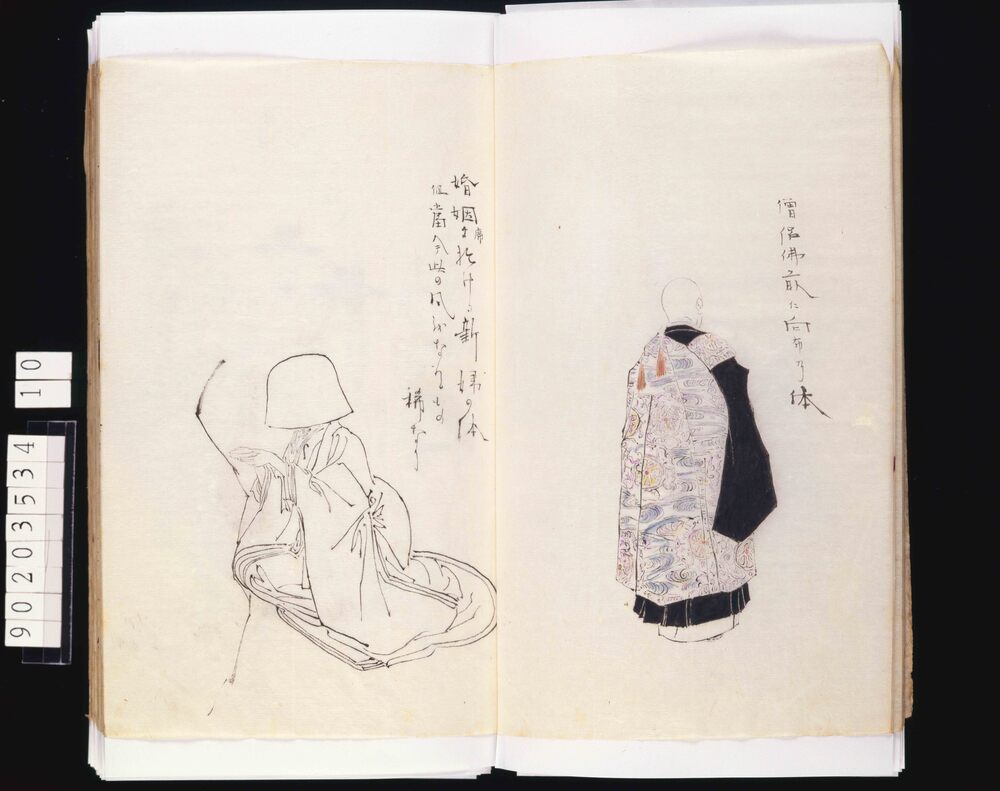 僧侶佛前に向ふの体
婚姻席に於ける新婦の体
但當今此の風を
稀なり
10
90203534